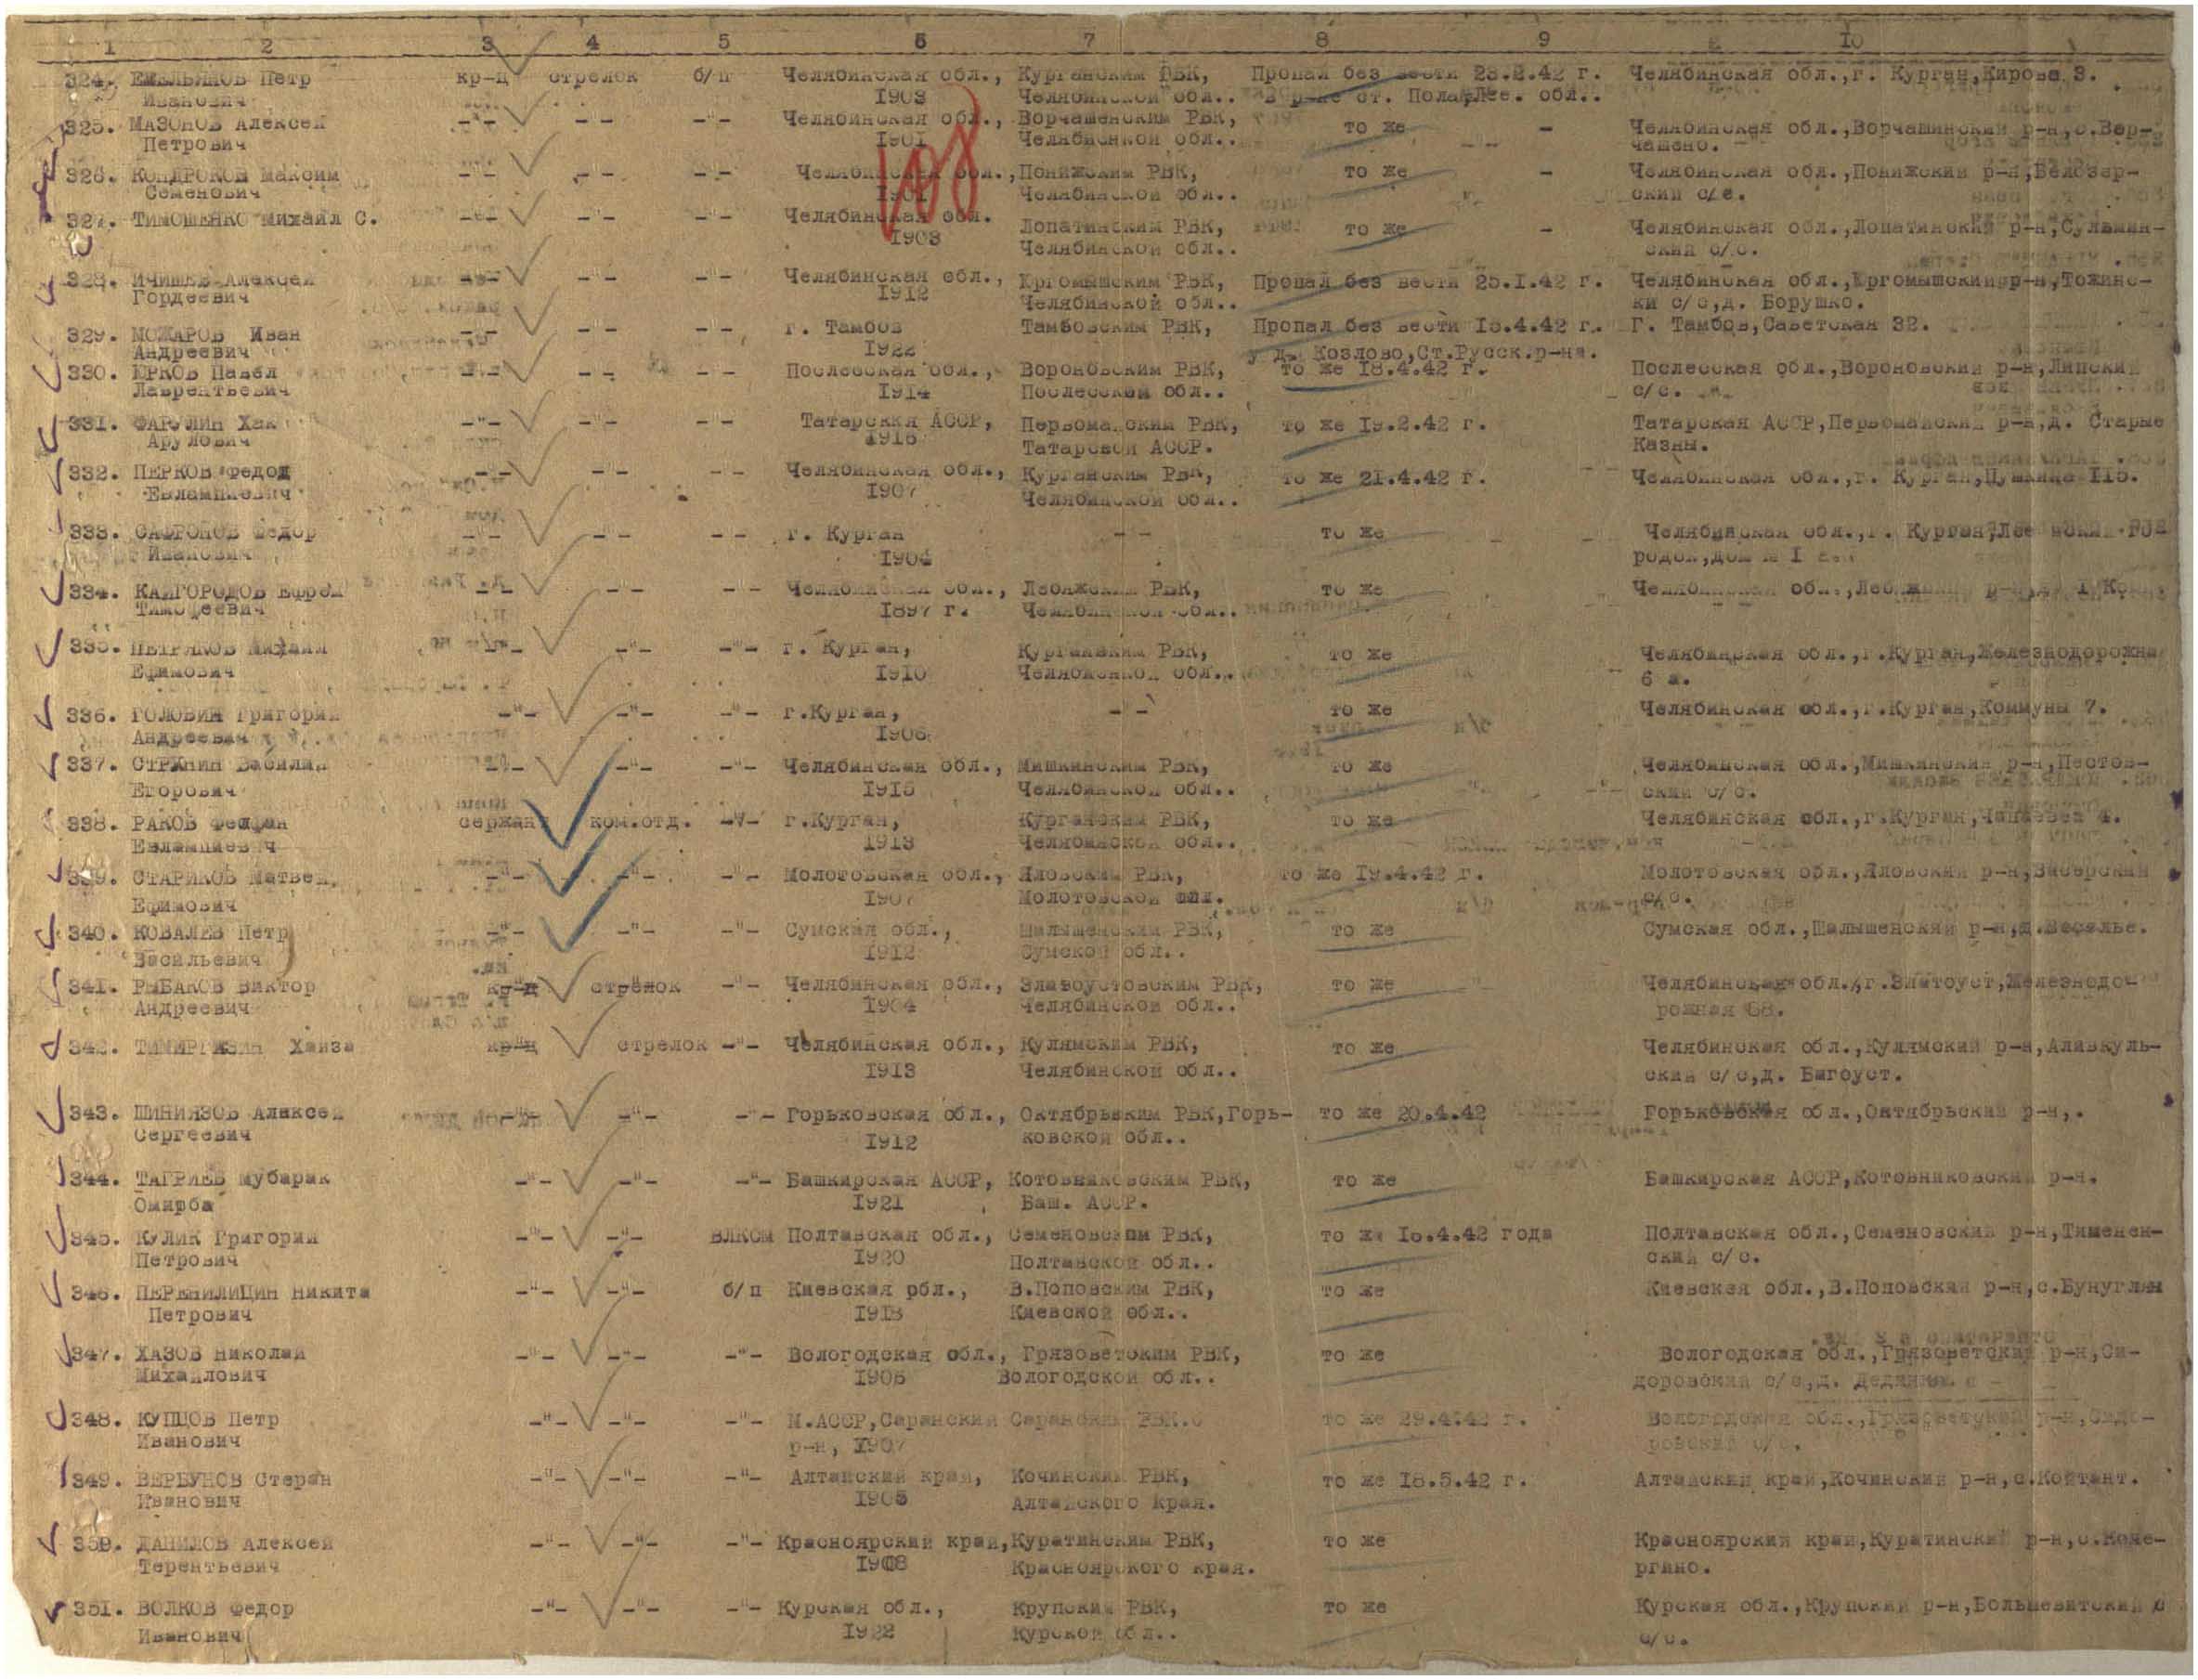 1 2 3 4 5 6 7 8 9 10
324. ЕМЕЛЬЯНОВ Петр кр-ц стрелок б/п Челябинская обл., Курганским РВК, Пропал без вести 23.2.42 г. Челябинская обл.,г. Курган,Кирова 3.
Иванович 1903 Челябинской обл.. в р-не ст. Пола,Лен. обл..
325. МАЗОНОВ Алексей -"- -"- -"- Челябинская обл., Ворчашенским РВК, то же - Челябинская обл.,Ворчашинский р-н,с.Вор-
Петрович 1901 Челябинской обл.. чашено.
326. КОНДРОКОВ Максим -"- -"- -"- Челябинская обл., Понижским РВК, то же - Челябинская обл.,Понижский р-н,Белозер-
Семенович 1901 Челябинской обл.. ский с/с.
108
327. ТИМОШЕНКО Михаил С. -"- -"- -"- Челябинская обл. Лопатинским РВК, то же - Челябинская обл.,Лопатинский р-н,Сульмин-
1903 Челябинской обл.. ский с/с.
328. ИЧИШЕВ Алексей -"- -"- -"- Челябинская обл., Юргомышским РВК, Пропал без вести 25.1.42 г. Челябинская обл.,Юргомышский р-н,Тожинс-
Гордеевич 1912 Челябинской обл.. ки с/с,д. Борушко.
329. МОЖАРОВ Иван -"- -"- -"- г. Тамбов Тамбовским РВК, Пропал без вести 18.4.42 г. Г. Тамбов,Саветская 32.
Андреевич 1922 у д. Козлово,Ст.Русск.р-на.
330. ЮРКОВ Павел -"- -"- -"- Послесская обл., Вороновским РВК, то же 18.4.42 г. Послесская обл.,Вороновский р-н,Липский
Лаврентьевич 1914 Послесской обл.. с/с.
331. ФАРУЛИН Хак -"- -"- -"- Татарская АССР, Первомайским РВК, то же 19.2.42 г. Татарская АССР,Первомайский р-н,д. Старые
Арулович 1916 Татарской АССР. Казны.
332. ПЕРКОВ Федод -"- -"- -"- Челябинская обл., Курганским РВК, то же 21.4.42 г. Челябинская обл.,г. Курган,Пушкина 115.
Евлампиевич 1907 Челябинской обл..
333. САФРОНОВ Федор -"- -"- -"- г. Курган -"- то же Челябинская обл.,г. Курган,
Иванович 1904 родок,дом № 1
334. КАЙГОРОДОВ Ефрем -"- -"- -"- Челябинская обл., Лебяжским РВК, то же Челябинская обл.,
Тимофеевич 1897 г. Челябинской обл..
335. ПЕТРЯКОВ Михаил -"- -"- -"- г. Курган, Курганским РВК, то же Челябинская обл.,г.Курган,Железнодорожна
Ефимович 1910 Челябинской обл.. 6 а.
336. ГОЛОВИН Григорий -"- -"- -"- г.Курган, -"- то же Челябинская обл.,г.Курган,Коммуны 7.
Андреевич 1906
337. СТРЯНИН Василий -"- -"- -"- Челябинская обл., Мишкинским РВК, то же Челябинская обл.,Мишкинский р-н,Пестов-
Егорович 1915 Челябинской обл.. ский с/с.
338. РАКОВ Феофан сержант ком.отд. -"- г.Курган, Курганским РВК, то же Челябинская обл.,г.Курган,Чапаева 4.
Евлампиевич 1913 Челябинской обл..
339. СТАРИКОВ Матвей -"- -"- -"- Молотовская обл., Яловским РВК, то же 19.4.42 г. Молотовская обл.,Яловский р-н,
Ефимович 1907 Молотовской обл. с/с.
340. КОВАЛЕВ Петр -"- -"- -"- Сумская обл., Шалышенским РВК, то же Сумская обл.,Шалышенский р-н,д.Веселье.
Васильевич 1912 Сумской обл..
341. РЫБАКОВ Виктор кр-ц стрелок -"- Челябинская обл., Златоустовским РВК, то же Челябинская обл.,г.Златоуст,Железнодо-
Андреевич 1904 Челябинской обл.. рожная 68.
342. Хаиза кр-ц стрелок -"- Челябинская обл., Кулямским РВК, то же Челябинская обл.,Кулямский р-н,Аливкуль-
1913 Челябинской обл.. ский с/с,д. Бигоуст.
343. ШИНИЯЗОВ Алексей -"- -"- -"- Горьковская обл., Октябрьским РВК,Горь- то же 20.4.42 Горьковская обл.,Октябрьский р-н,.
Сергеевич 1912 ковской обл..
344. ТАГРИЕВ Мубарак -"- -"- -"- Башкирская АССР, Котовниковским РВК, то же Башкирская АССР,Котовниковский р-н.
Омирба 1921 Баш. АССР.
345. КУЛИК Григорий -"- -"- ВЛКСМ Полтавская обл., Семеновским РВК, то же 18.4.42 года Полтавская обл.,Семеновский р-н,Тименен-
Петрович 1920 Полтавской обл.. ский с/с.
346. ПЕРЕНИЛИЦИН Никита -"- -"- б/п Киевская обл., В.Поповским РВК, то же Киевская обл.,В.Поповский р-н,с.Бунугляи
Петрович 1913 Киевской обл..
347. ХАЗОВ Николай -"- -"- -"- Вологодская обл., Грязоветским РВК, то же Вологодская обл.,Грязоветский р-н,Си-
Михайлович 1906 Вологодской обл.. доровский с/с,д.
348. КУПЦОВ Петр -"- -"- -"- М.АССР,Саранский Саранским РВК. то же 29.4.42 г. Вологодская обл.,Грязоветский р-н,Сидо-
Иванович р-н, 1907 ровский с/с.
349. ВЕРБУНОВ Степан -"- -"- -"- Алтайский край, Кочинским РВК, то же 18.5.42 г. Алтайский край,Кочинский р-н,с.Койтант.
Иванович 1905 Алтайского края.
350. ДАНИЛОВ Алексей -"- -"- -"- Красноярский край, Куратинским РВК, то же Красноярский край,Куратинский р-н,с.Коче-
Терентьевич 1908 Красноярского края. ргино.
351. ВОЛКОВ Федор -"- -"- -"- Курская обл., Крупским РВК, то же Курская обл.,Крупский р-н,Большевитский
Иванович 1922 Курской обл.. с/с.